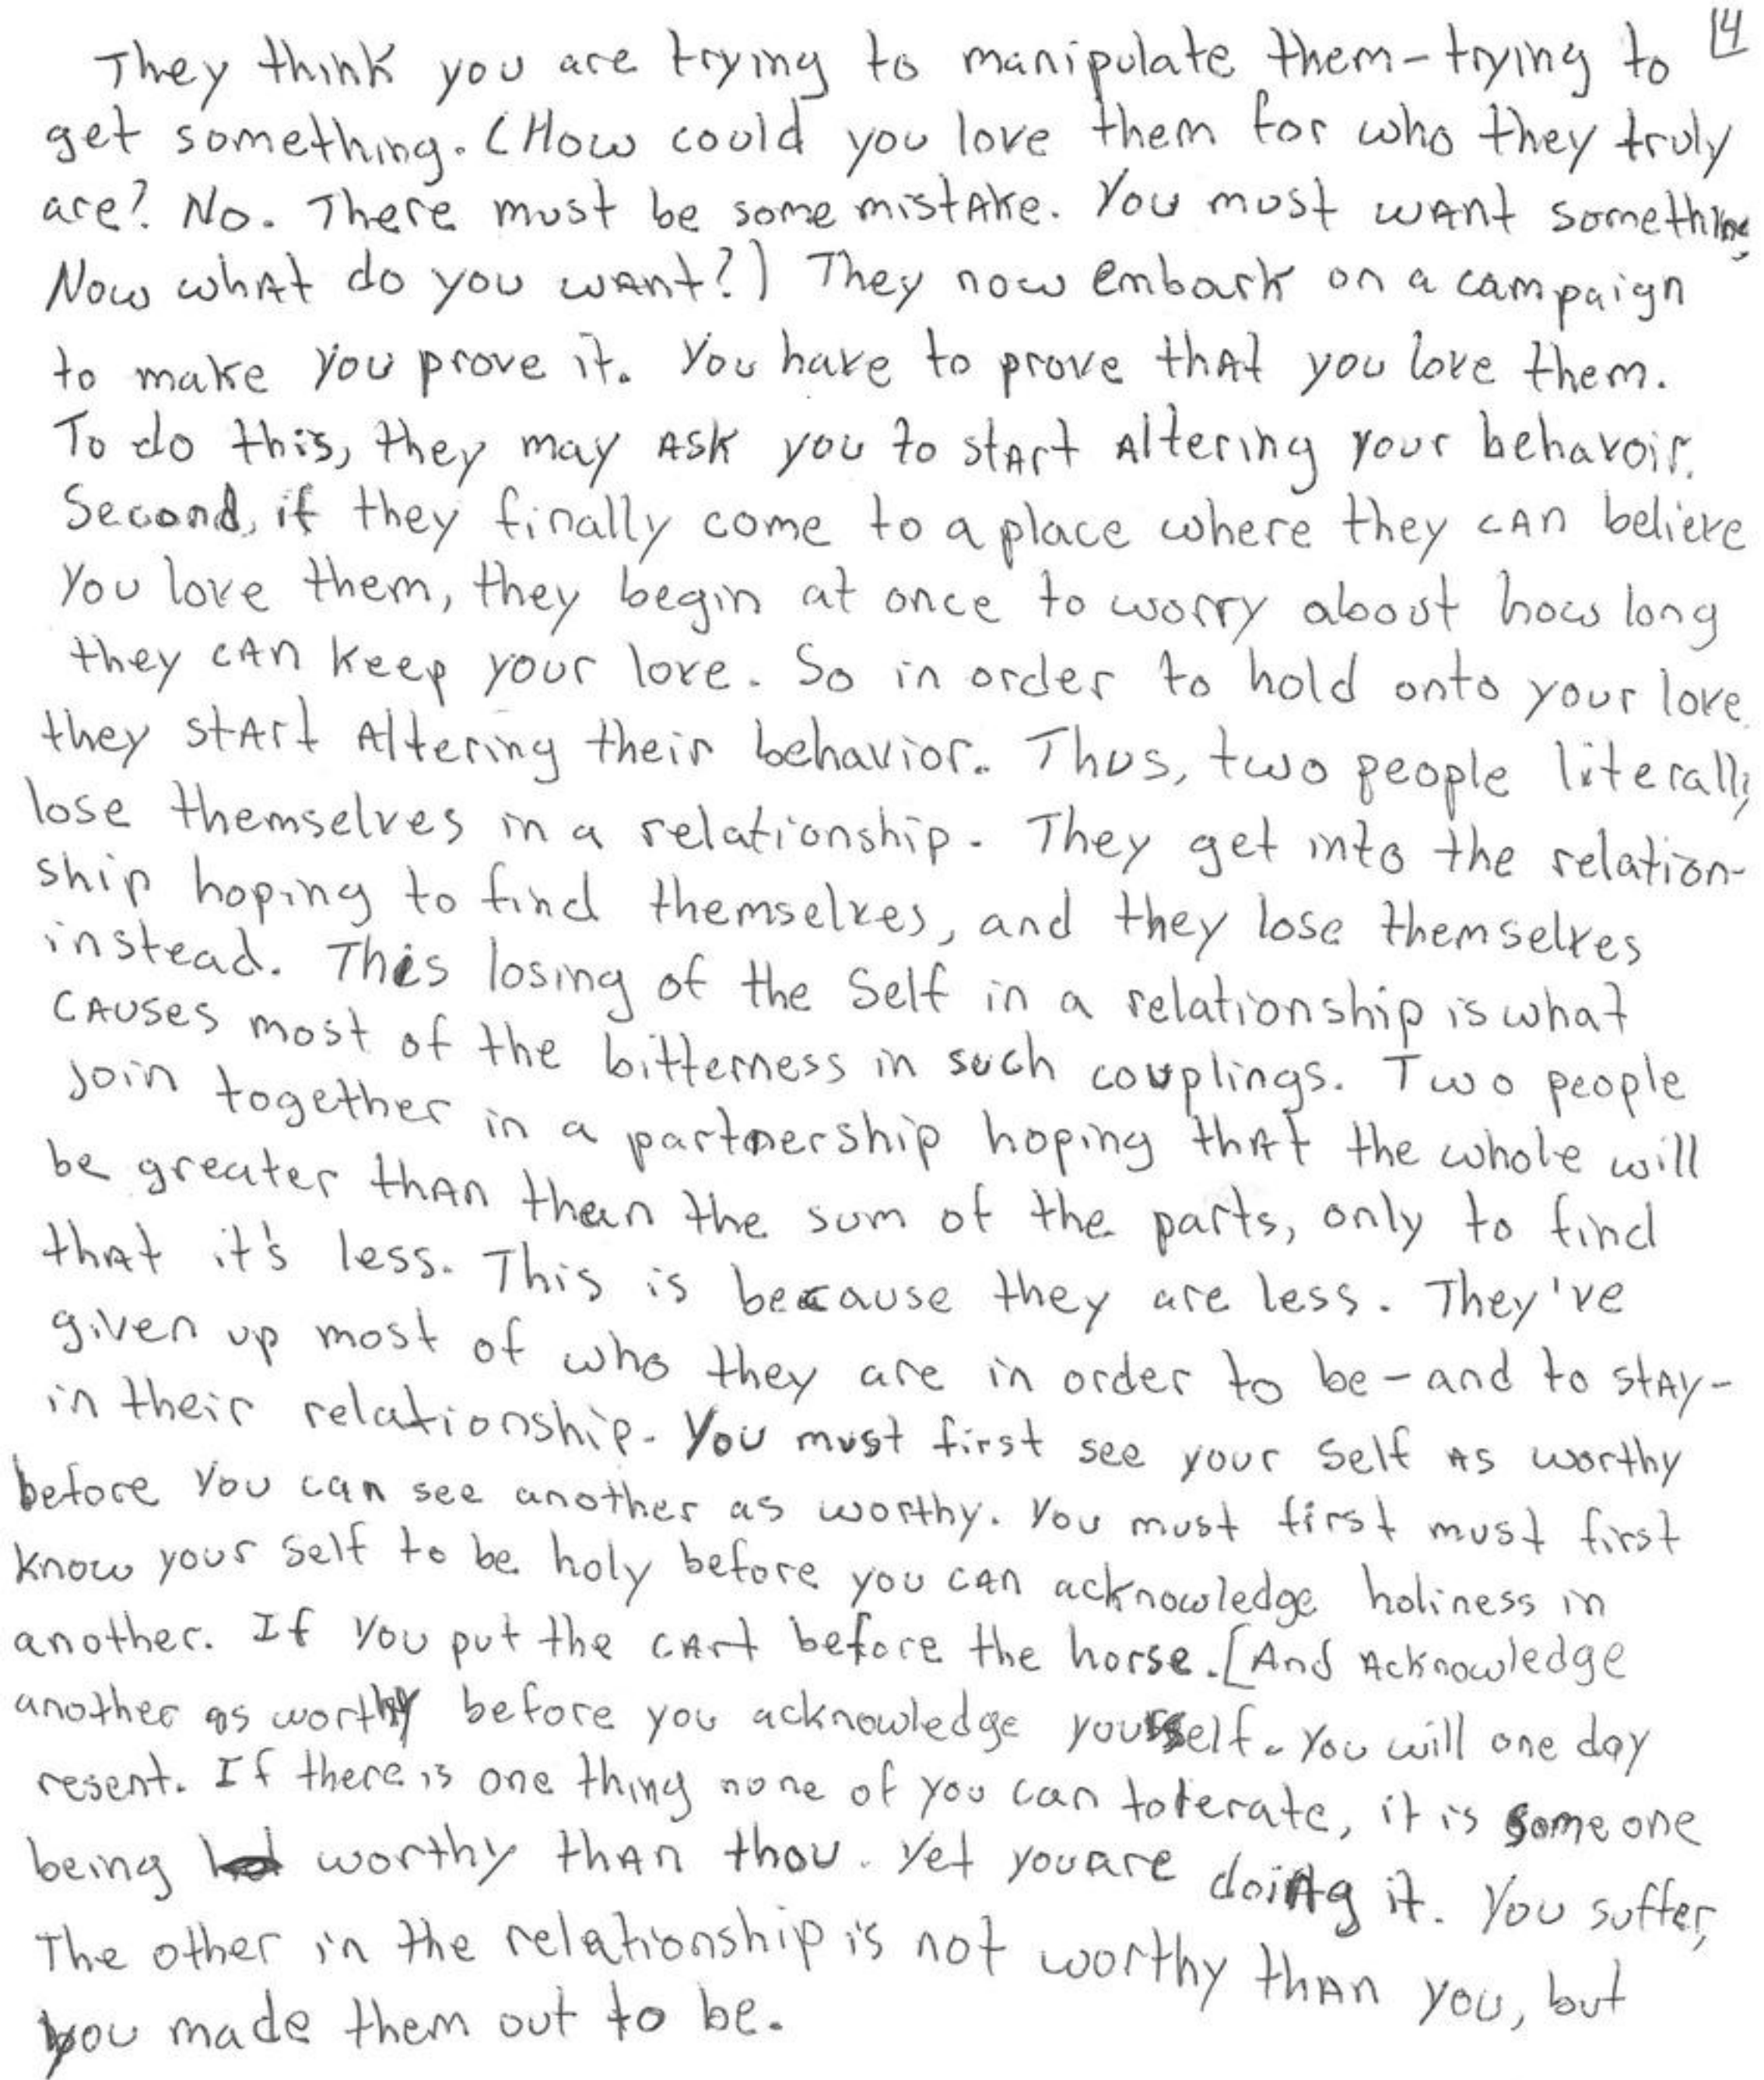 14
They think you are trying to manipulate them-trying to
get something. (How could you love them for who they truly
are? No. There must be some mistake. You must want something
Now what do you want?) They now embark on a campaign
to make you prove it. You have to prove that you love them.
To do this, they may ask you to start altering your behavoir.
Second, if they finally come to a place where they can believe
you love them, they begin at once to worry about how long
they can keep your love. So in order to hold onto your love
they start altering their behavior. Thus, two people literally
lose themselves in a relationship. They get into the relation-
ship hoping to find themselves, and they lose themselves
instead. This losing of the Self in a relationship is what
causes most of the bitterness in such couplings. Two people
join together in a partnership hoping that the whole will
be greater than than the sum of the parts, only to find
that it's less. This is because they are less. They've
given up most of who they are in order to be-and to stay-
in their relationship. You must first see your Self as worthy
before you can see another as worthy. You must first must first
know your Self to be holy before you can acknowledge holiness in
another. If you put the cart before the horse. [And Acknowledge
another as worthy before you acknowledge yourself. You will one day
resent. If there is one thing none of you can tolerate, it is someone
being worthy than thou. Yet you are doing it. You suffer,
The other in the relationship is not worthy than you, but
you made them out to be.